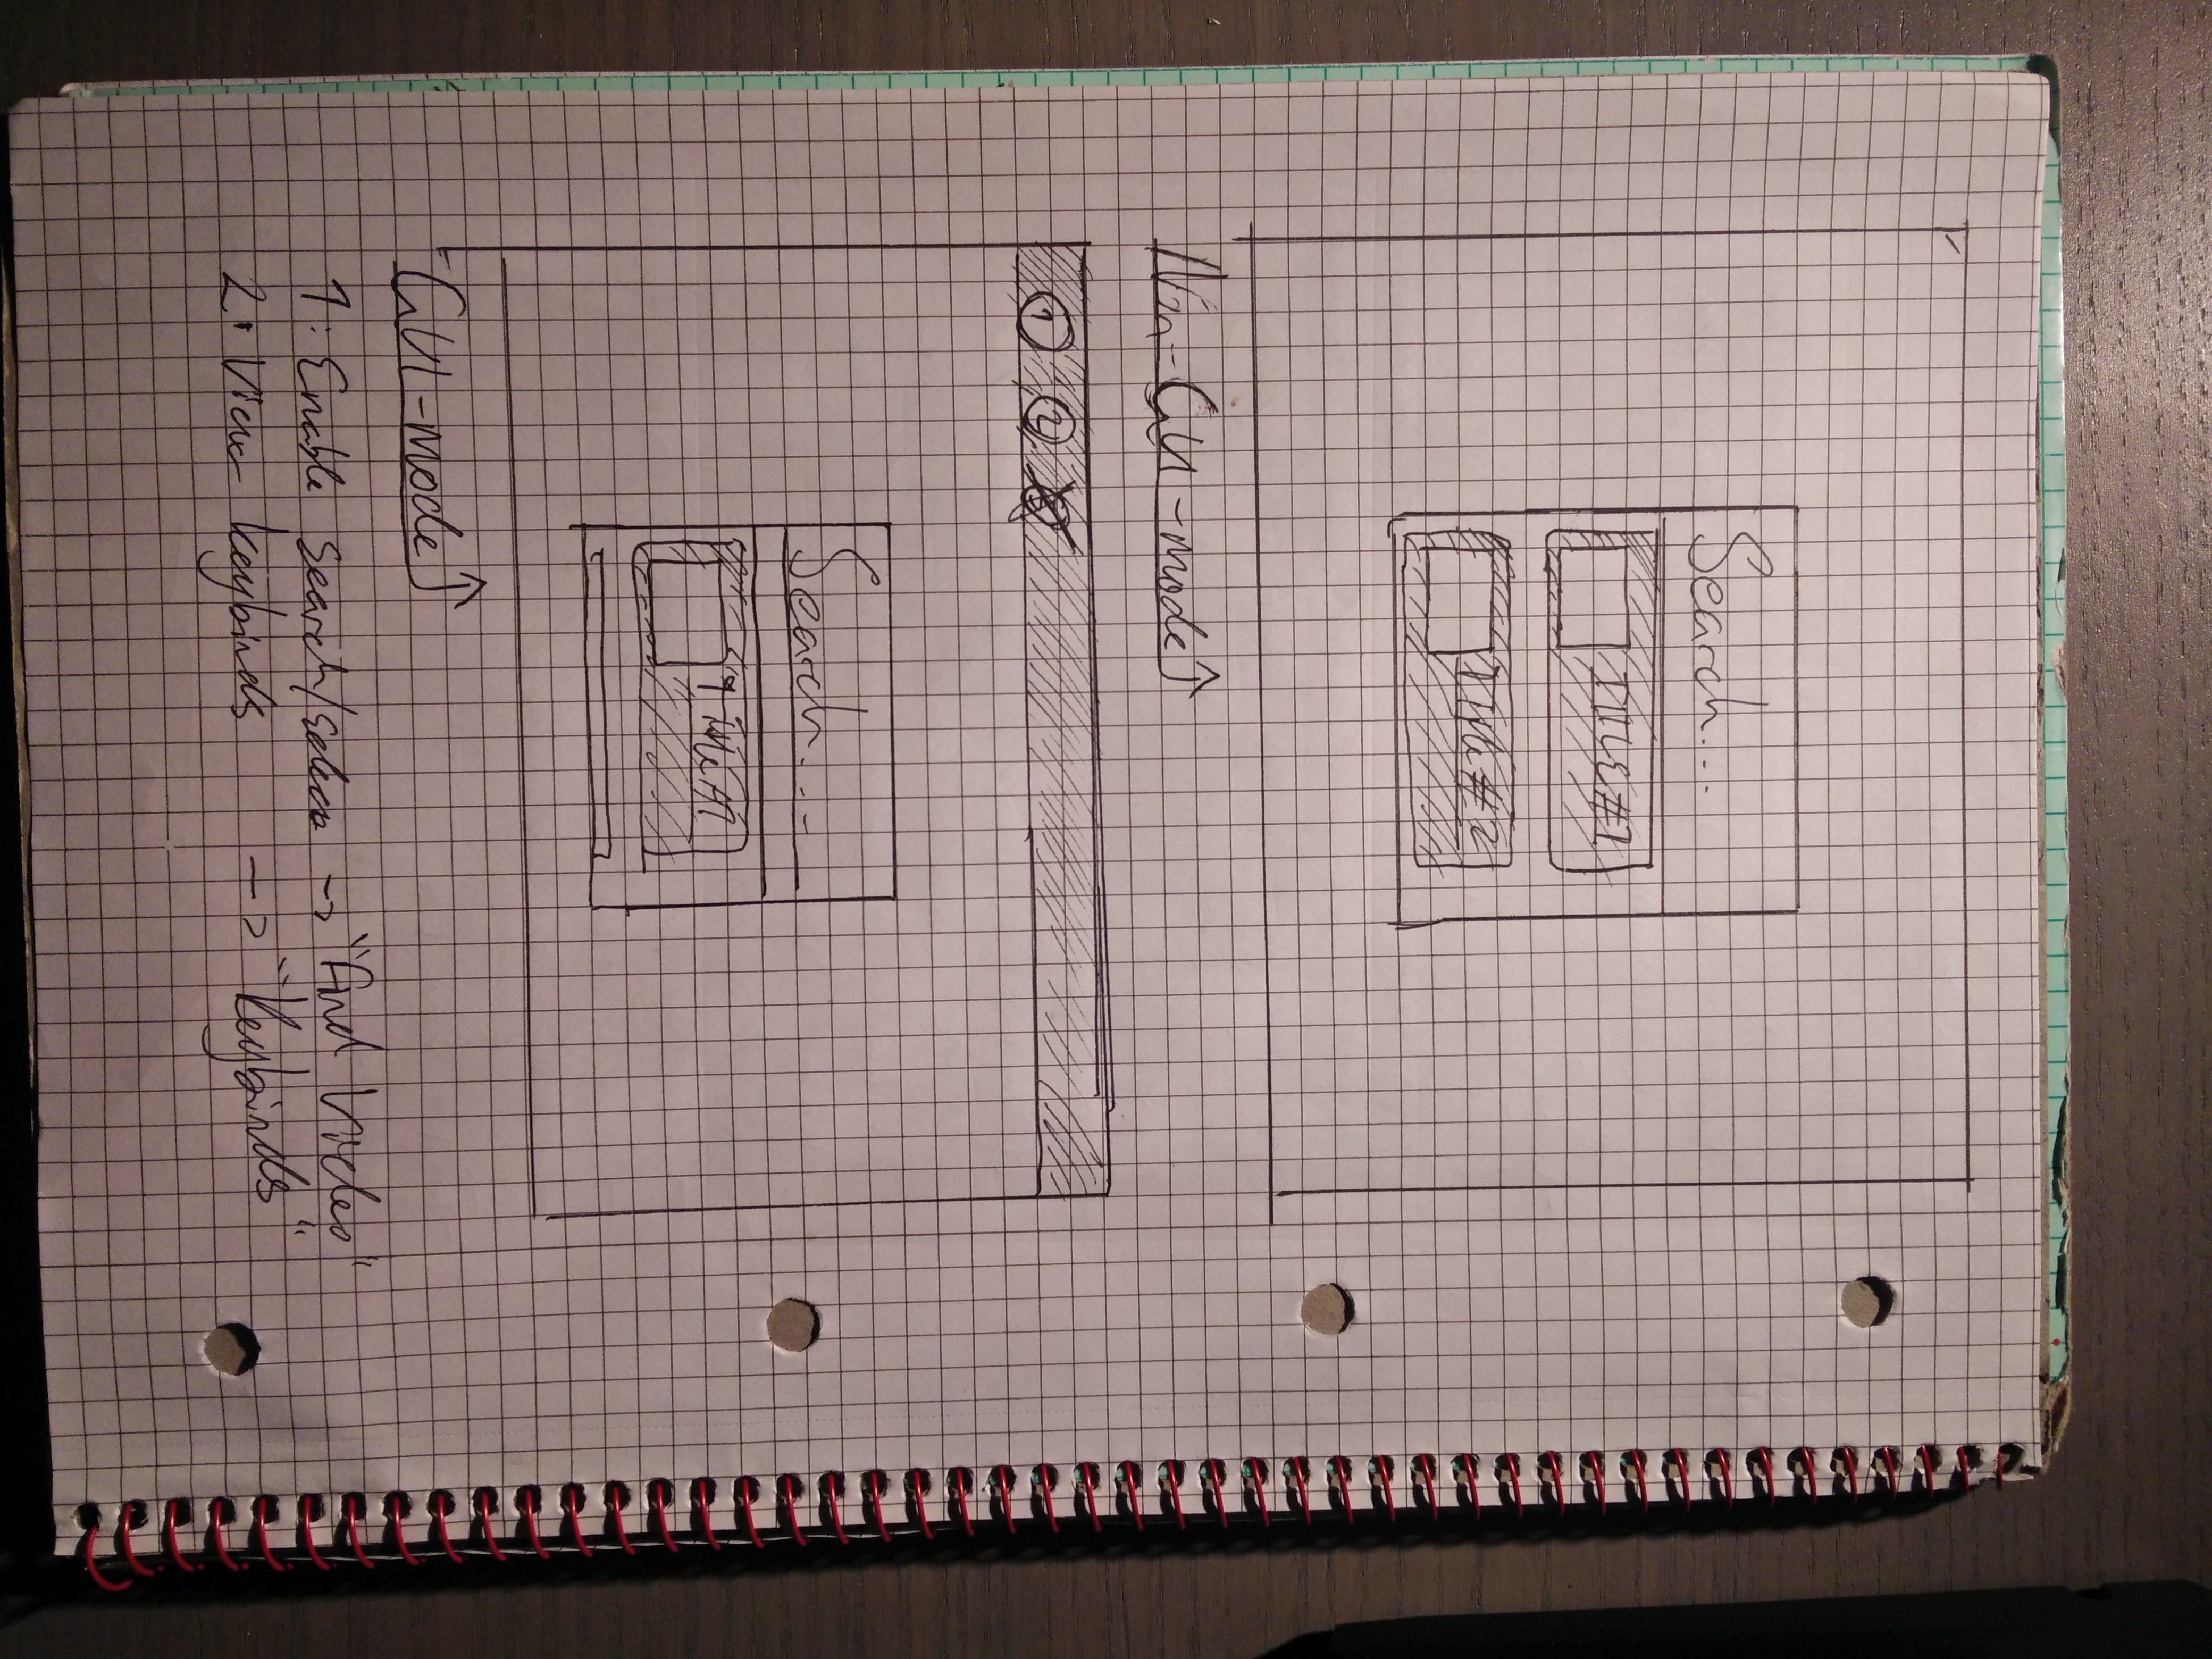 Search...
TITLE#1
Title#2
Vim-GUI-Mode
1 2
Search...
GUI-Mode
1: Enable Search/ -> "Find Video"
2: View keybinds -> "Keybinds"